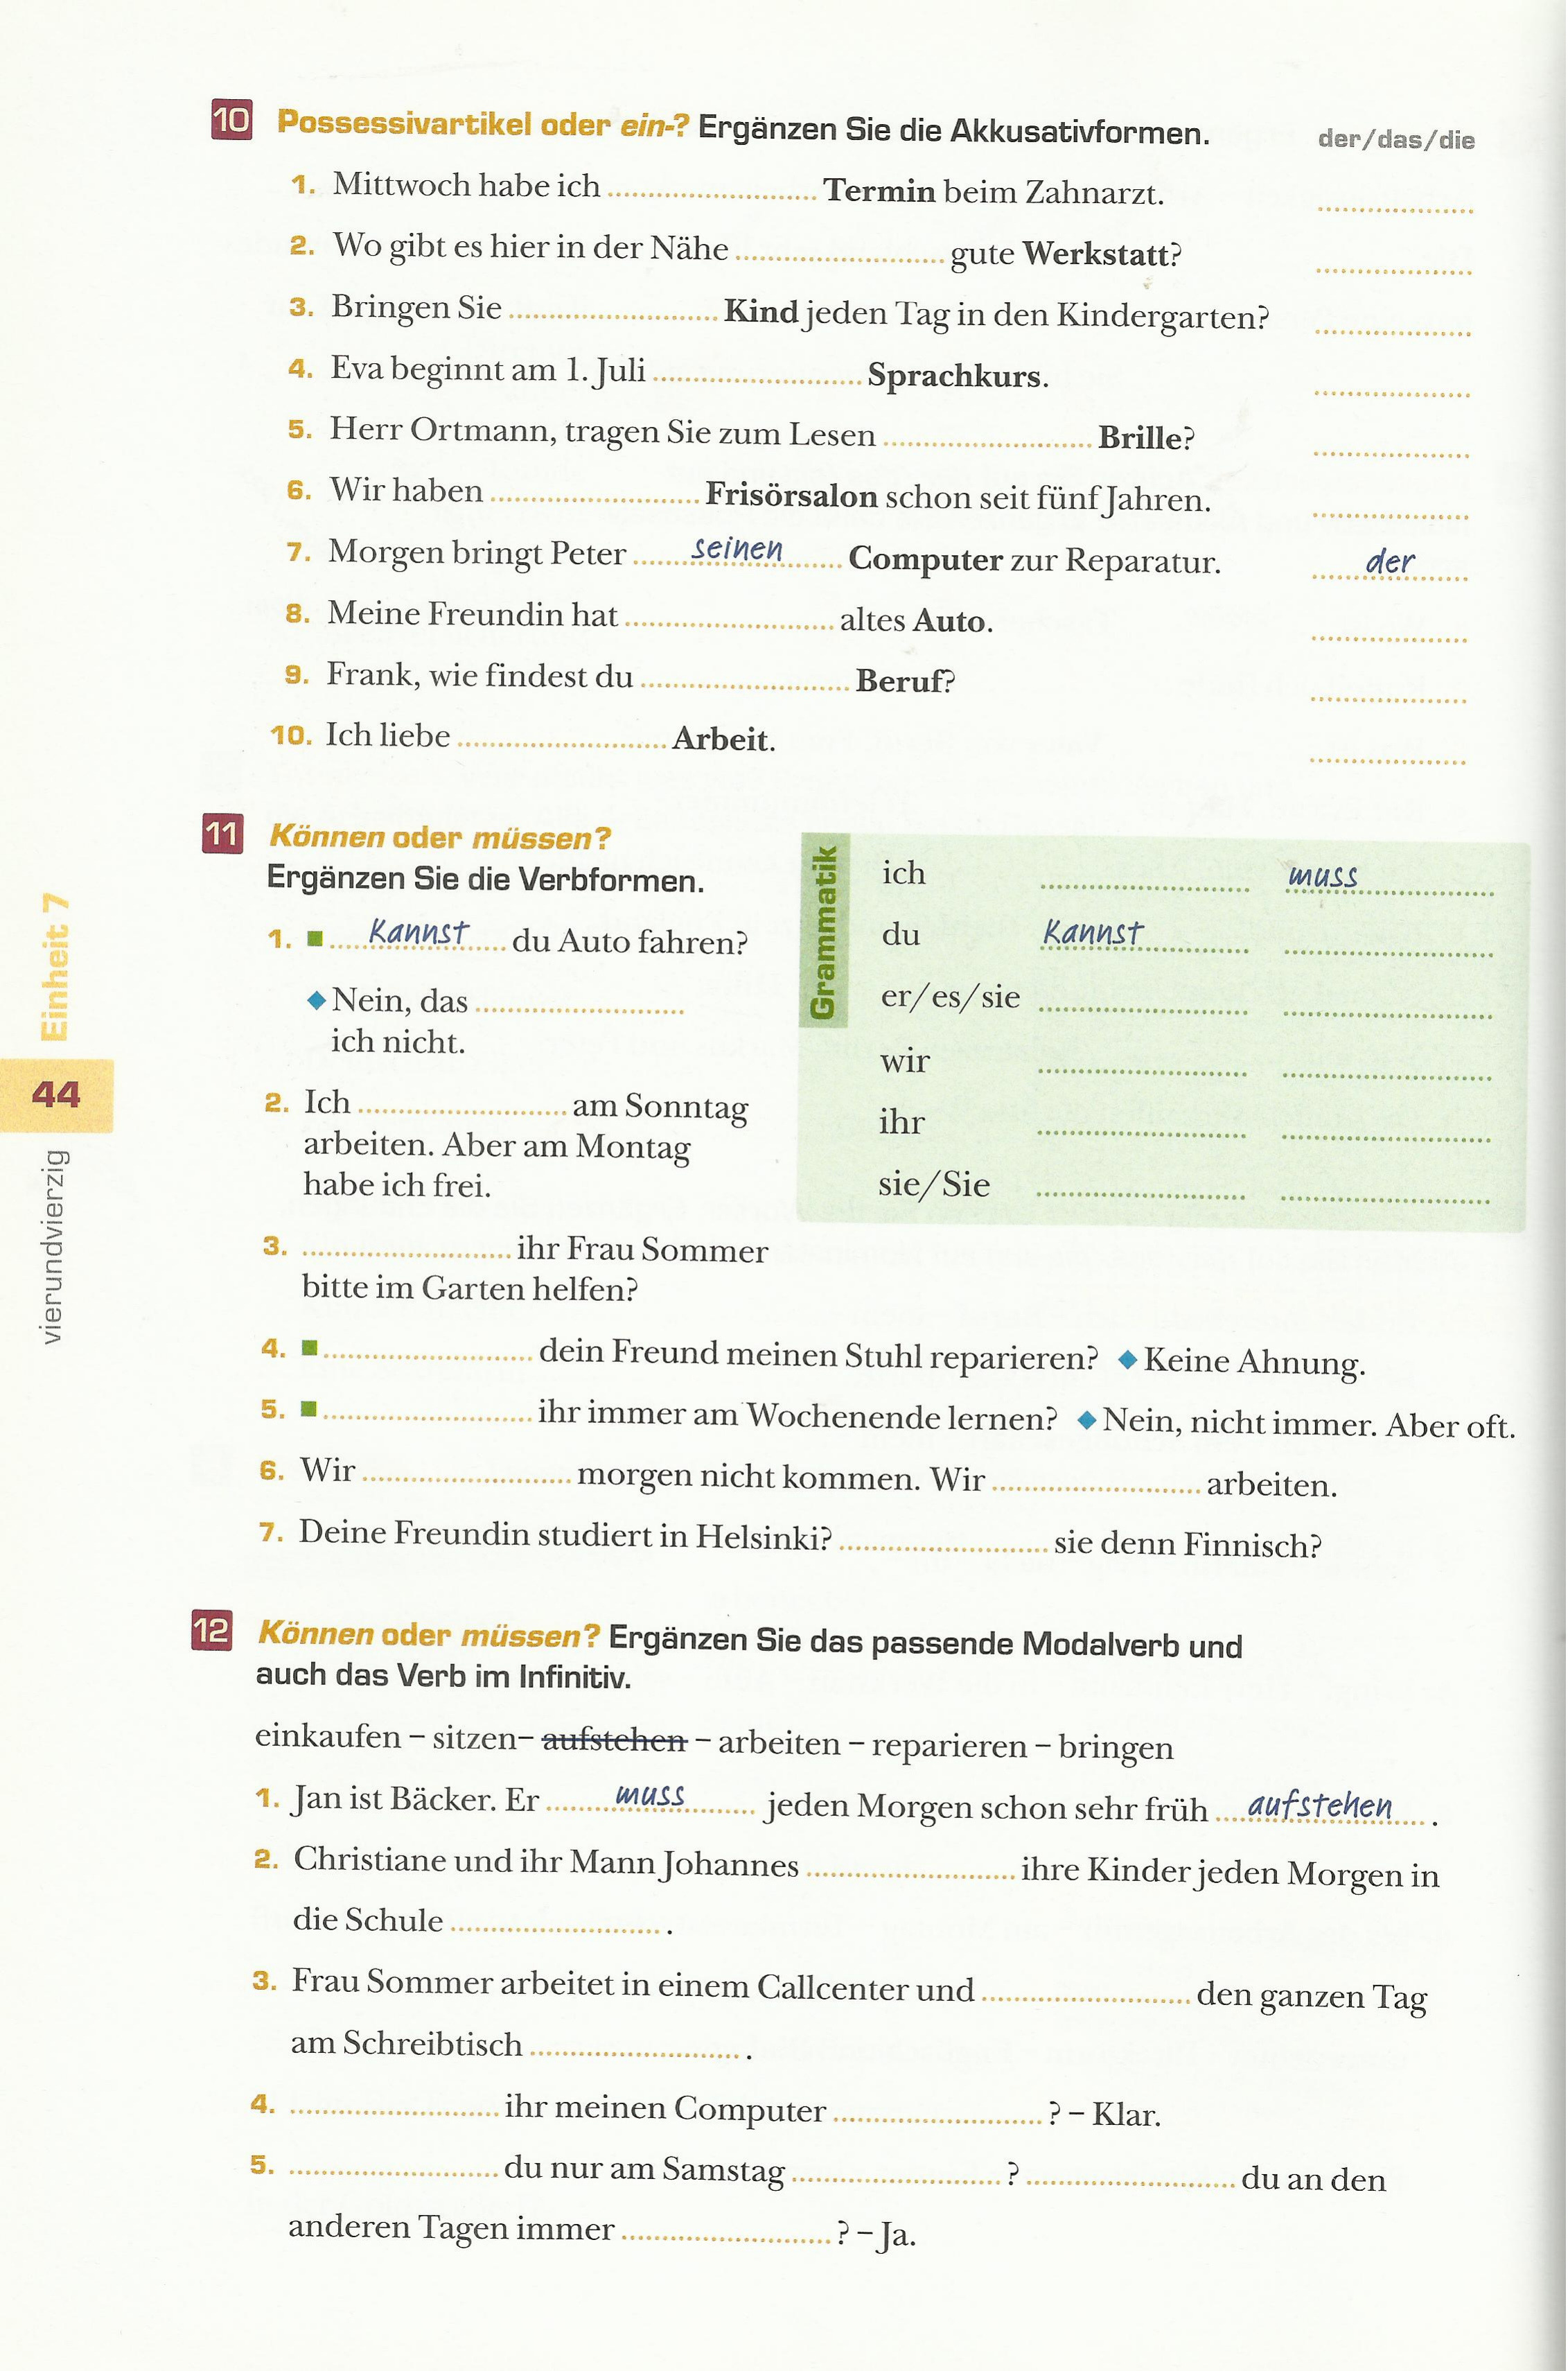 10 Possessivartikel oder ein-? Ergänzen Sie die Akkusativformen. der/das/die
1. Mittwoch habe ich ........................ Termin beim Zahnarzt. ........................
2. Wo gibt es hier in der Nähe ........................ gute Werkstatt? ........................
3. Bringen Sie ........................ Kind jeden Tag in den Kindergarten? ........................
4. Eva beginnt am 1. Juli ........................ Sprachkurs. ........................
5. Herr Ortmann, tragen Sie zum Lesen ........................ Brille? ........................
6. Wir haben ........................ Frisörsalon schon seit fünf Jahren. ........................
7. Morgen bringt Peter seinen Computer zur Reparatur. der
8. Meine Freundin hat ........................ altes Auto. ........................
9. Frank, wie findest du ........................ Beruf? ........................
10. Ich liebe ........................ Arbeit. ........................
11 Können oder müssen?
Ergänzen Sie die Verbformen.
1. ■ Kannst du Auto fahren?
◆ Nein, das ........................
ich nicht.
2. Ich ........................ am Sonntag
arbeiten. Aber am Montag
habe ich frei.
3. ........................ ihr Frau Sommer
bitte im Garten helfen?
Grammatik
ich ........................ muss
du Kannst ........................
er/es/sie ........................ ........................
wir ........................ ........................
ihr ........................ ........................
sie/Sie ........................ ........................
4. ■ ........................ dein Freund meinen Stuhl reparieren? ◆ Keine Ahnung.
5. ■ ........................ ihr immer am Wochenende lernen? ◆ Nein, nicht immer. Aber oft.
6. Wir ........................ morgen nicht kommen. Wir ........................ arbeiten.
7. Deine Freundin studiert in Helsinki? ........................ sie denn Finnisch?
12 Können oder müssen? Ergänzen Sie das passende Modalverb und
auch das Verb im Infinitiv.
einkaufen – sitzen– aufstehen – arbeiten – reparieren – bringen
1. Jan ist Bäcker. Er muss jeden Morgen schon sehr früh aufstehen .
2. Christiane und ihr Mann Johannes ........................ ihre Kinder jeden Morgen in
die Schule ........................ .
3. Frau Sommer arbeitet in einem Callcenter und ........................ den ganzen Tag
am Schreibtisch ........................ .
4. ........................ ihr meinen Computer ........................ ? – Klar.
5. ........................ du nur am Samstag ........................ ? ........................ du an den
anderen Tagen immer ........................ ? – Ja.
Einheit 7
44
vierundvierzig